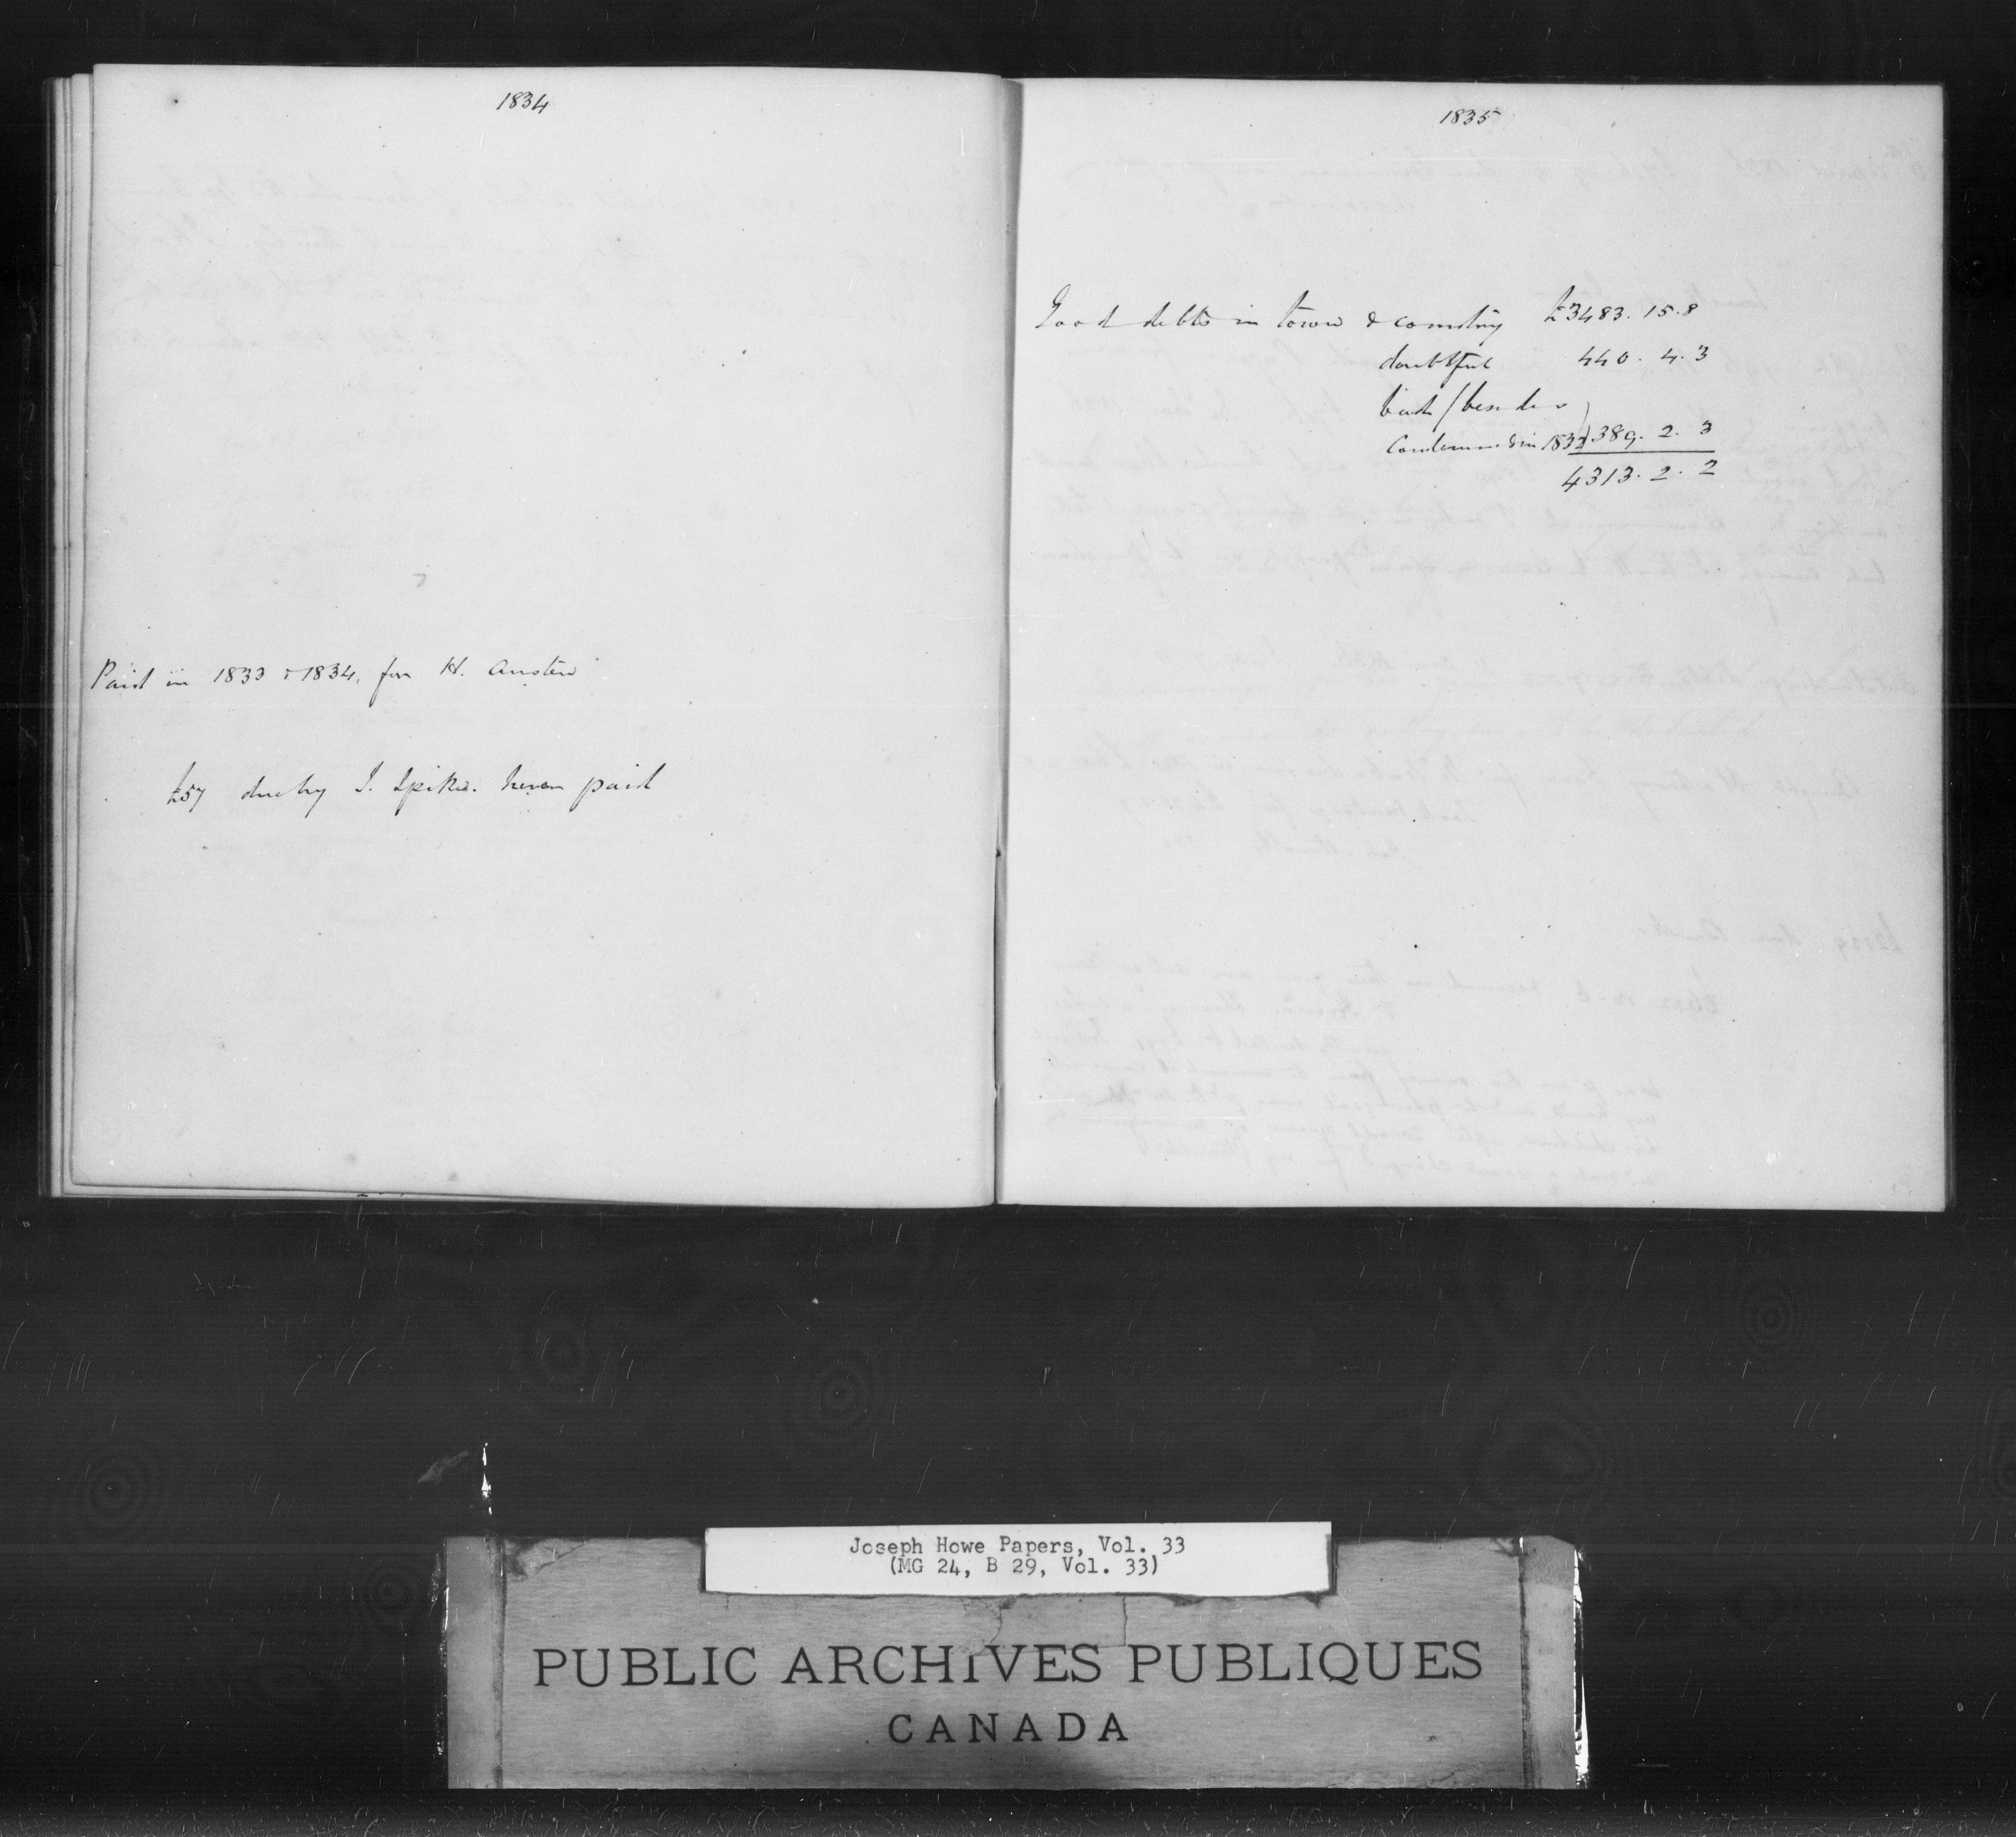 1834
Paid in 1833 & 1834, for H. Austen
£57 due by J. Spike. never paid
1835
Good debts in town & country £3483. 15. 8
doubtful 440. 4. 3
bad / besides
Condemned in 1832 389. 2. 3
4313. 2. 2
Joseph Howe Papers, Vol. 33
(MG 24, B 29, Vol. 33)
PUBLIC ARCHIVES PUBLIQUES
CANADA